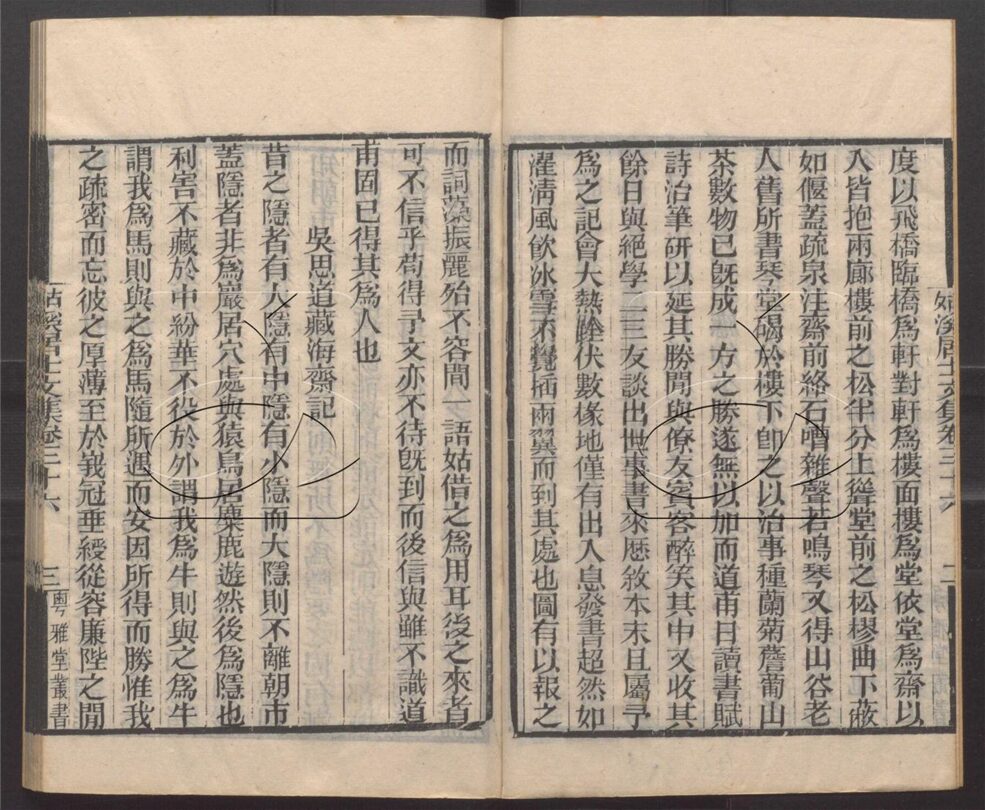 度以飛橋臨橋爲軒對軒爲樓面樓爲堂依堂爲齋以
入皆抱兩廊樓前之松半分上聳堂前之松樛曲下蔽
如偃蓋疏泉注齋前絡石嘈雜聲若鳴琴又得山谷老
人舊所書琴堂碣於樓下卽之以治事種蘭菊薝蔔山
茶數物已旣成一方之勝遂無以加而道甫日讀書賦
詩治筆研以延其勝閒與僚友賓客醉笑其中又收其
餘日與絕學二三友談出世事書來歷敘本末且屬予
爲之記會大熱畦伏數椽地僅有出入息發書超然如
濯淸風飮冰雪不覺插兩翼而到其處也圖有以報之
姑溪居士文集卷三十六 二
而詞藻振麗殆不容間一語姑借之爲用耳後之來者
可不信乎苟得予文亦不待旣到而後信與雖不識道
甫固已得其爲人也
吳思道藏海齋記
昔之隱者有大隱有中隱有小隱而大隱則不離朝市
蓋隱者非爲巖居穴處與猿鳥居麋鹿遊然後爲隱也
利害不藏於中紛華不役於外謂我爲牛則與之爲牛
謂我爲馬則與之爲馬隨所遇而安因所得而勝惟我
之疏密而忘彼之厚薄至於峩冠垂綬從容廉陛之閒
姑溪居士文集卷三十六 三 粵雅堂叢書